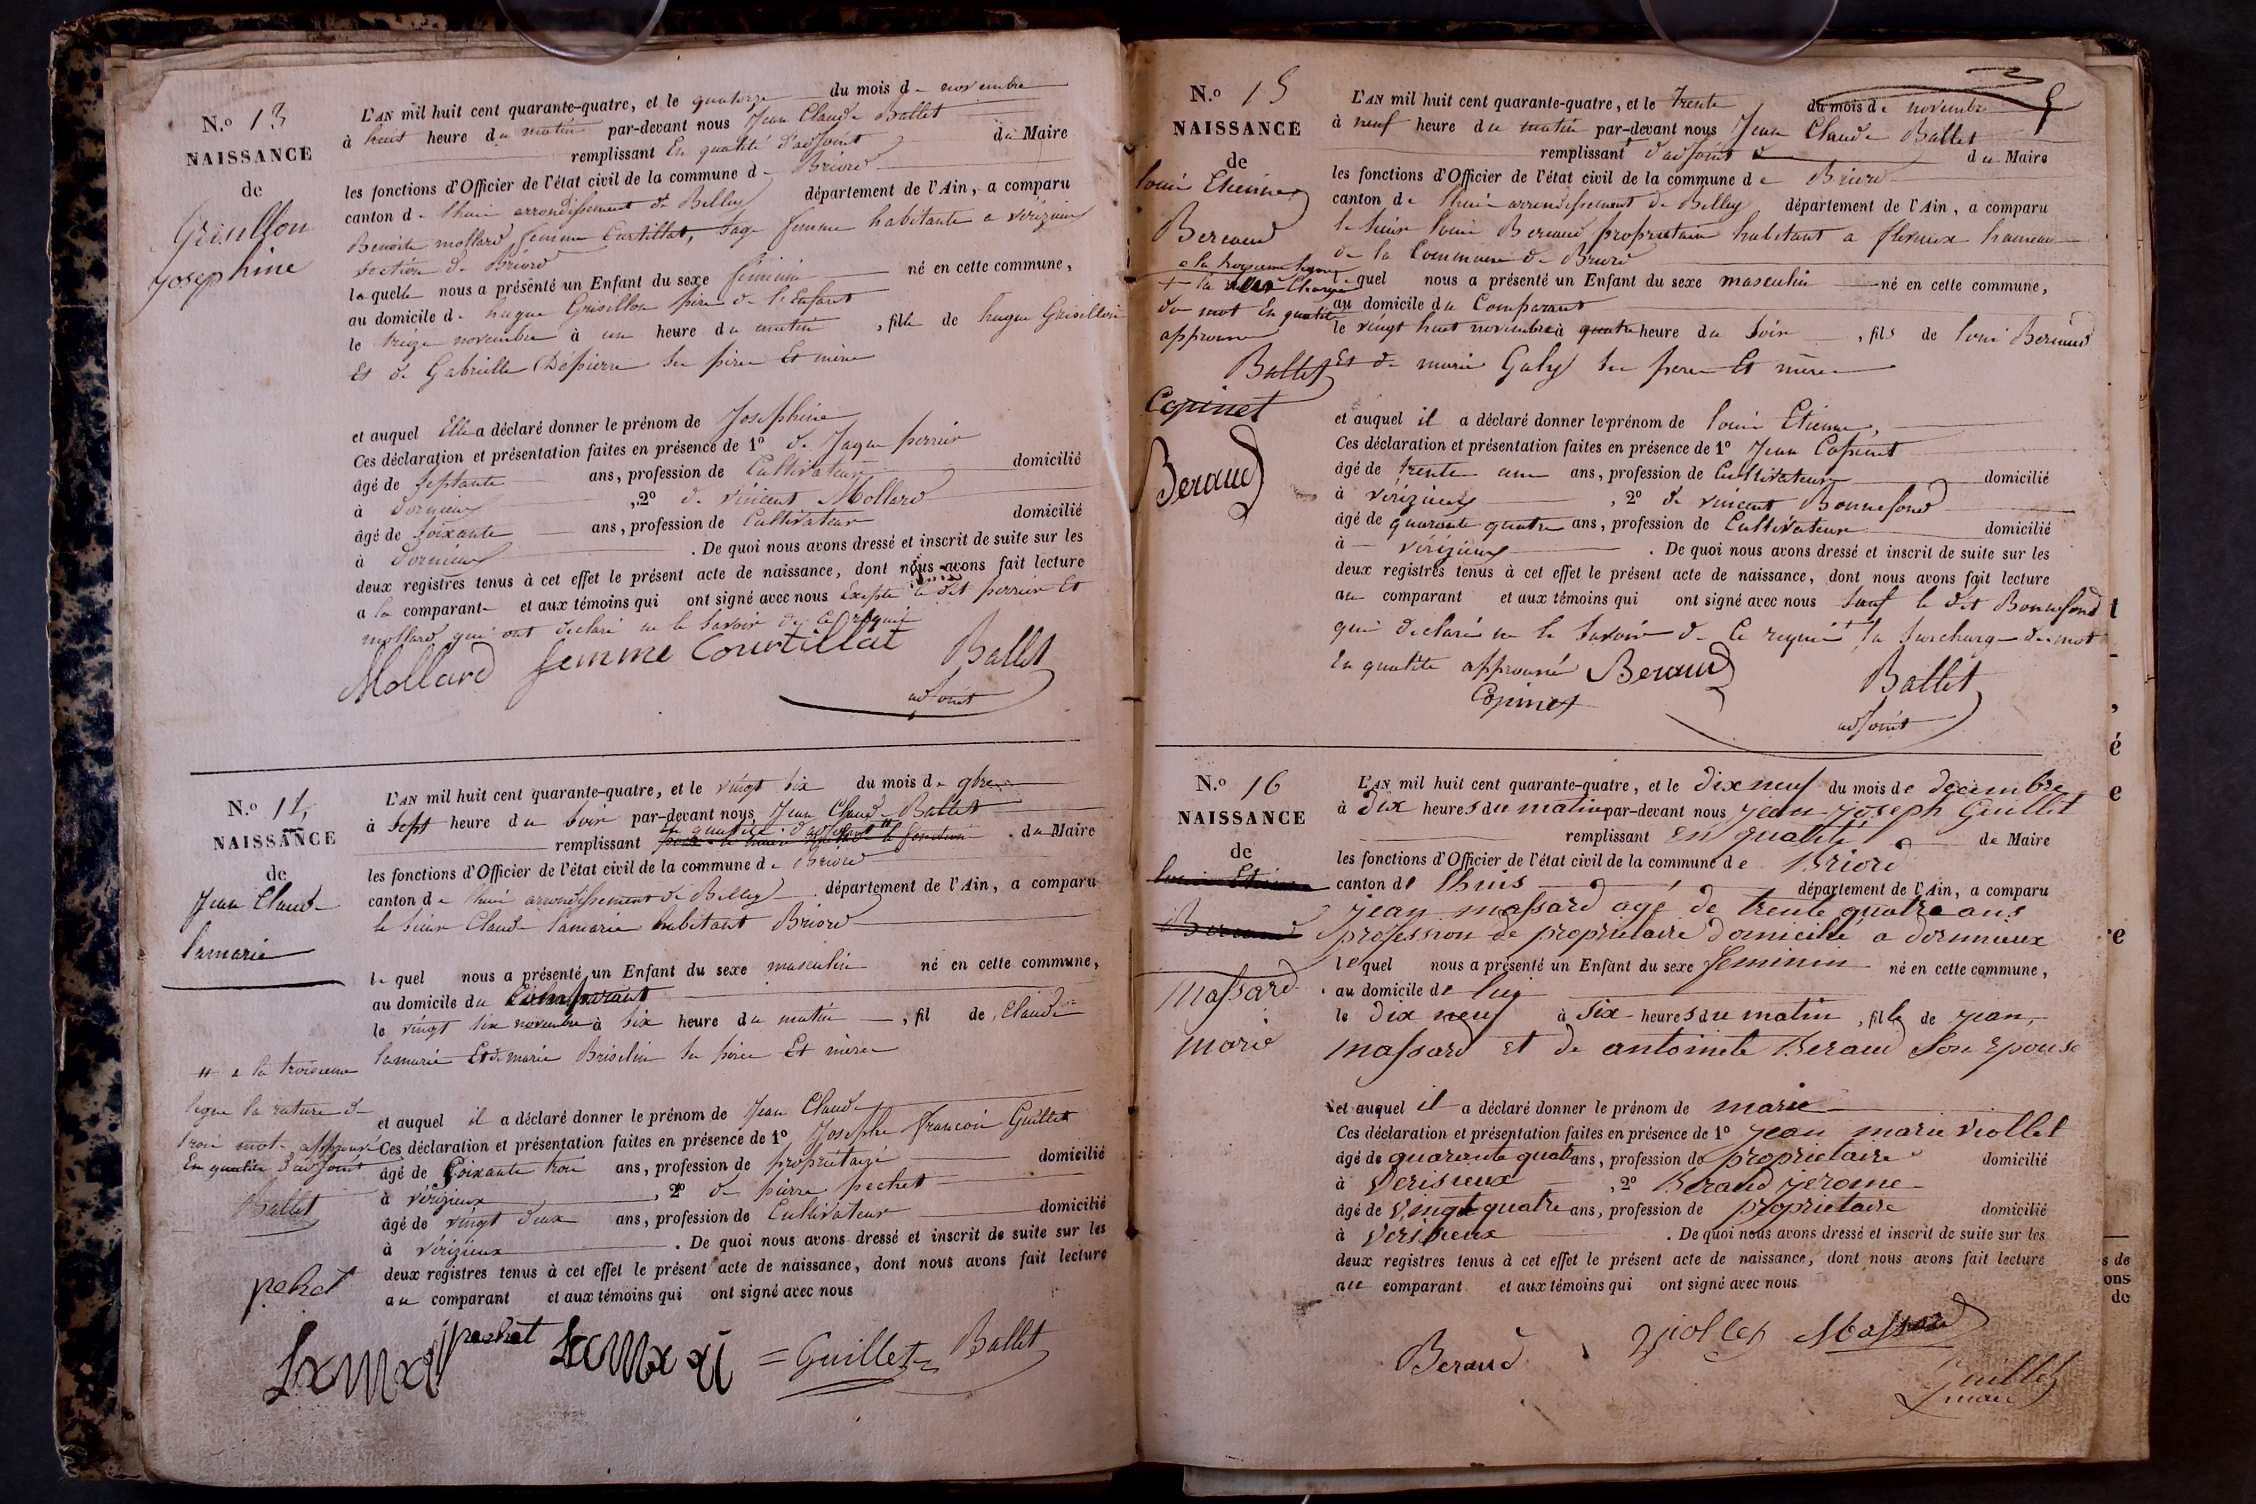 N.º 13
NAISSANCE
de
Grisillon
Josephine
L'AN mil huit cent quarante-quatre, et le quatorze du mois de novembre
à huit heure du matin par-devant nous Jean Claude Ballet
remplissant En qualité d'adjoint du Maire
les fonctions d'Officier de l'état civil de la commune de Briord
canton de lhuis arrondissement de Belley département de l'Ain, a comparu
Benoite mollard femme Curtillat, sage femme habitante a vérizieux
section de Briord
laquelle nous a présenté un Enfant du sexe féminin né en cette commune,
au domicile de hugue Grisillon père de l'Enfant
le treize novembre à une heure du matin, fille de hugue Grisillon
Et de Gabrielle Dépierre ses père Et mère
et auquel Elle a déclaré donner le prénom de Josephine
Ces déclaration et présentation faites en présence de 1º de Jaque perrier
âgé de septante ans, profession de Cultivateur domicilié
à Dornieux, 2º de vincent Mollard
âgé de soixante ans, profession de Cultivateur domicilié
à Dornieux. De quoi nous avons dressé et inscrit de suite sur les
deux registres tenus à cet effet le présent acte de naissance, dont nous avons fait lecture
a la comparante et aux témoins qui ont signé avec nous Excepté le dit perrier Et
mollard qui ont declaré ne le savoir de ce requis
Mollard femme Courtillat Ballet
adjoint
N.º 14
NAISSANCE
de
Jean Claude
lamarie
L'AN mil huit cent quarante-quatre, et le vingt six du mois de 9bre
à Sept heure du soir par-devant nous Jean Claude Ballet
en qualité d'adjoint "
remplissant du Maire
les fonctions d'Officier de l'état civil de la commune de Briord
canton de lhuis arrondissement de Belley département de l'Ain, a comparu
le sieur Claude lamarie habitant Briord
le quel nous a présenté un Enfant du sexe masculin né en cette commune,
au domicile du Comparant
le vingt six novembre à six heure du matin, fil de Claude
lamarie Et de marie Briselin ses père Et mère
" a la troisieme
ligne la rature de
trois mot approuvé
En qualité d'adjoint
Ballet
pechet
et auquel il a déclaré donner le prénom de Jean Claude
Ces déclaration et présentation faites en présence de 1º Josephe francois Guillet
âgé de soixante trois ans, profession de propriétaire domicilié
à vérizieux, 2º de pierre pechet
âgé de vingt deux ans, profession de Cultivateur domicilié
à vérizieux. De quoi nous avons dressé et inscrit de suite sur les
deux registres tenus à cet effet le présent acte de naissance, dont nous avons fait lecture
au comparant et aux témoins qui ont signé avec nous
pechet Guillet Ballet
N.º 15
NAISSANCE
de
louis Etienne
Beraud
a la troisieme ligne
+ la surcharge
du mot En qualité
approuvé
Ballet
Copinet
Beraud
5
L'AN mil huit cent quarante-quatre, et le trente du mois de novembre
à neuf heure du matin par-devant nous Jean Claude Ballet
remplissant d'adjoint du Maire
les fonctions d'Officier de l'état civil de la commune de Briord
canton de lhuis arrondissement de Belley département de l'Ain, a comparu
le sieur louis Beraud propriétaire habitant a flevieux hameau
de la Commune de Briord
lequel nous a présenté un Enfant du sexe masculin né en cette commune,
au domicile du Comparant
le vingt huit novembre à quatre heure du soir, fils de louis Beraud
Et de marie Galy ses père Et mère
et auquel il a déclaré donner le prénom de louis Etienne,
Ces déclaration et présentation faites en présence de 1º Jean Copinet
âgé de trente un ans, profession de Cultivateur domicilié
à vérizieux, 2º de vincent Bonnefond
âgé de quarante quatre ans, profession de Cultivateur domicilié
à vérizieux. De quoi nous avons dressé et inscrit de suite sur les
deux registres tenus à cet effet le présent acte de naissance, dont nous avons fait lecture
au comparant et aux témoins qui ont signé avec nous sauf le dit Bonnefond
qui declaré ne le savoir de ce requis + la surcharge du mot
En qualité approuvé Beraud Ballet
Copinet adjoint
N.º 16
NAISSANCE
de
louis Etienne
Beraud
Massard
marie
L'AN mil huit cent quarante-quatre, et le dix neuf du mois de décembre
à dix heures du matin par-devant nous jean joseph Guillet
remplissant en qualité de Maire
les fonctions d'Officier de l'état civil de la commune de Briord
canton de lhuis département de l'Ain, a comparu
jean massard agé de trente quatre ans
profession de propriétaire domicilié a dornieux
lequel nous a présenté un Enfant du sexe feminin né en cette commune,
au domicile de lui
le dix neuf à six heures du matin, fille de jean
massard et de antoinete Beraud son epouse
et auquel il a déclaré donner le prénom de marie
Ces déclaration et présentation faites en présence de 1º jean marie viollet
âgé de quarante quatre ans, profession de propriétaire domicilié
à verisieux, 2º Beraud jerome
âgé de vingt quatre ans, profession de propriétaire domicilié
à verisieux. De quoi nous avons dressé et inscrit de suite sur les
deux registres tenus à cet effet le présent acte de naissance, dont nous avons fait lecture
au comparant et aux témoins qui ont signé avec nous
Beraud viollet Massard
Guillet
maire